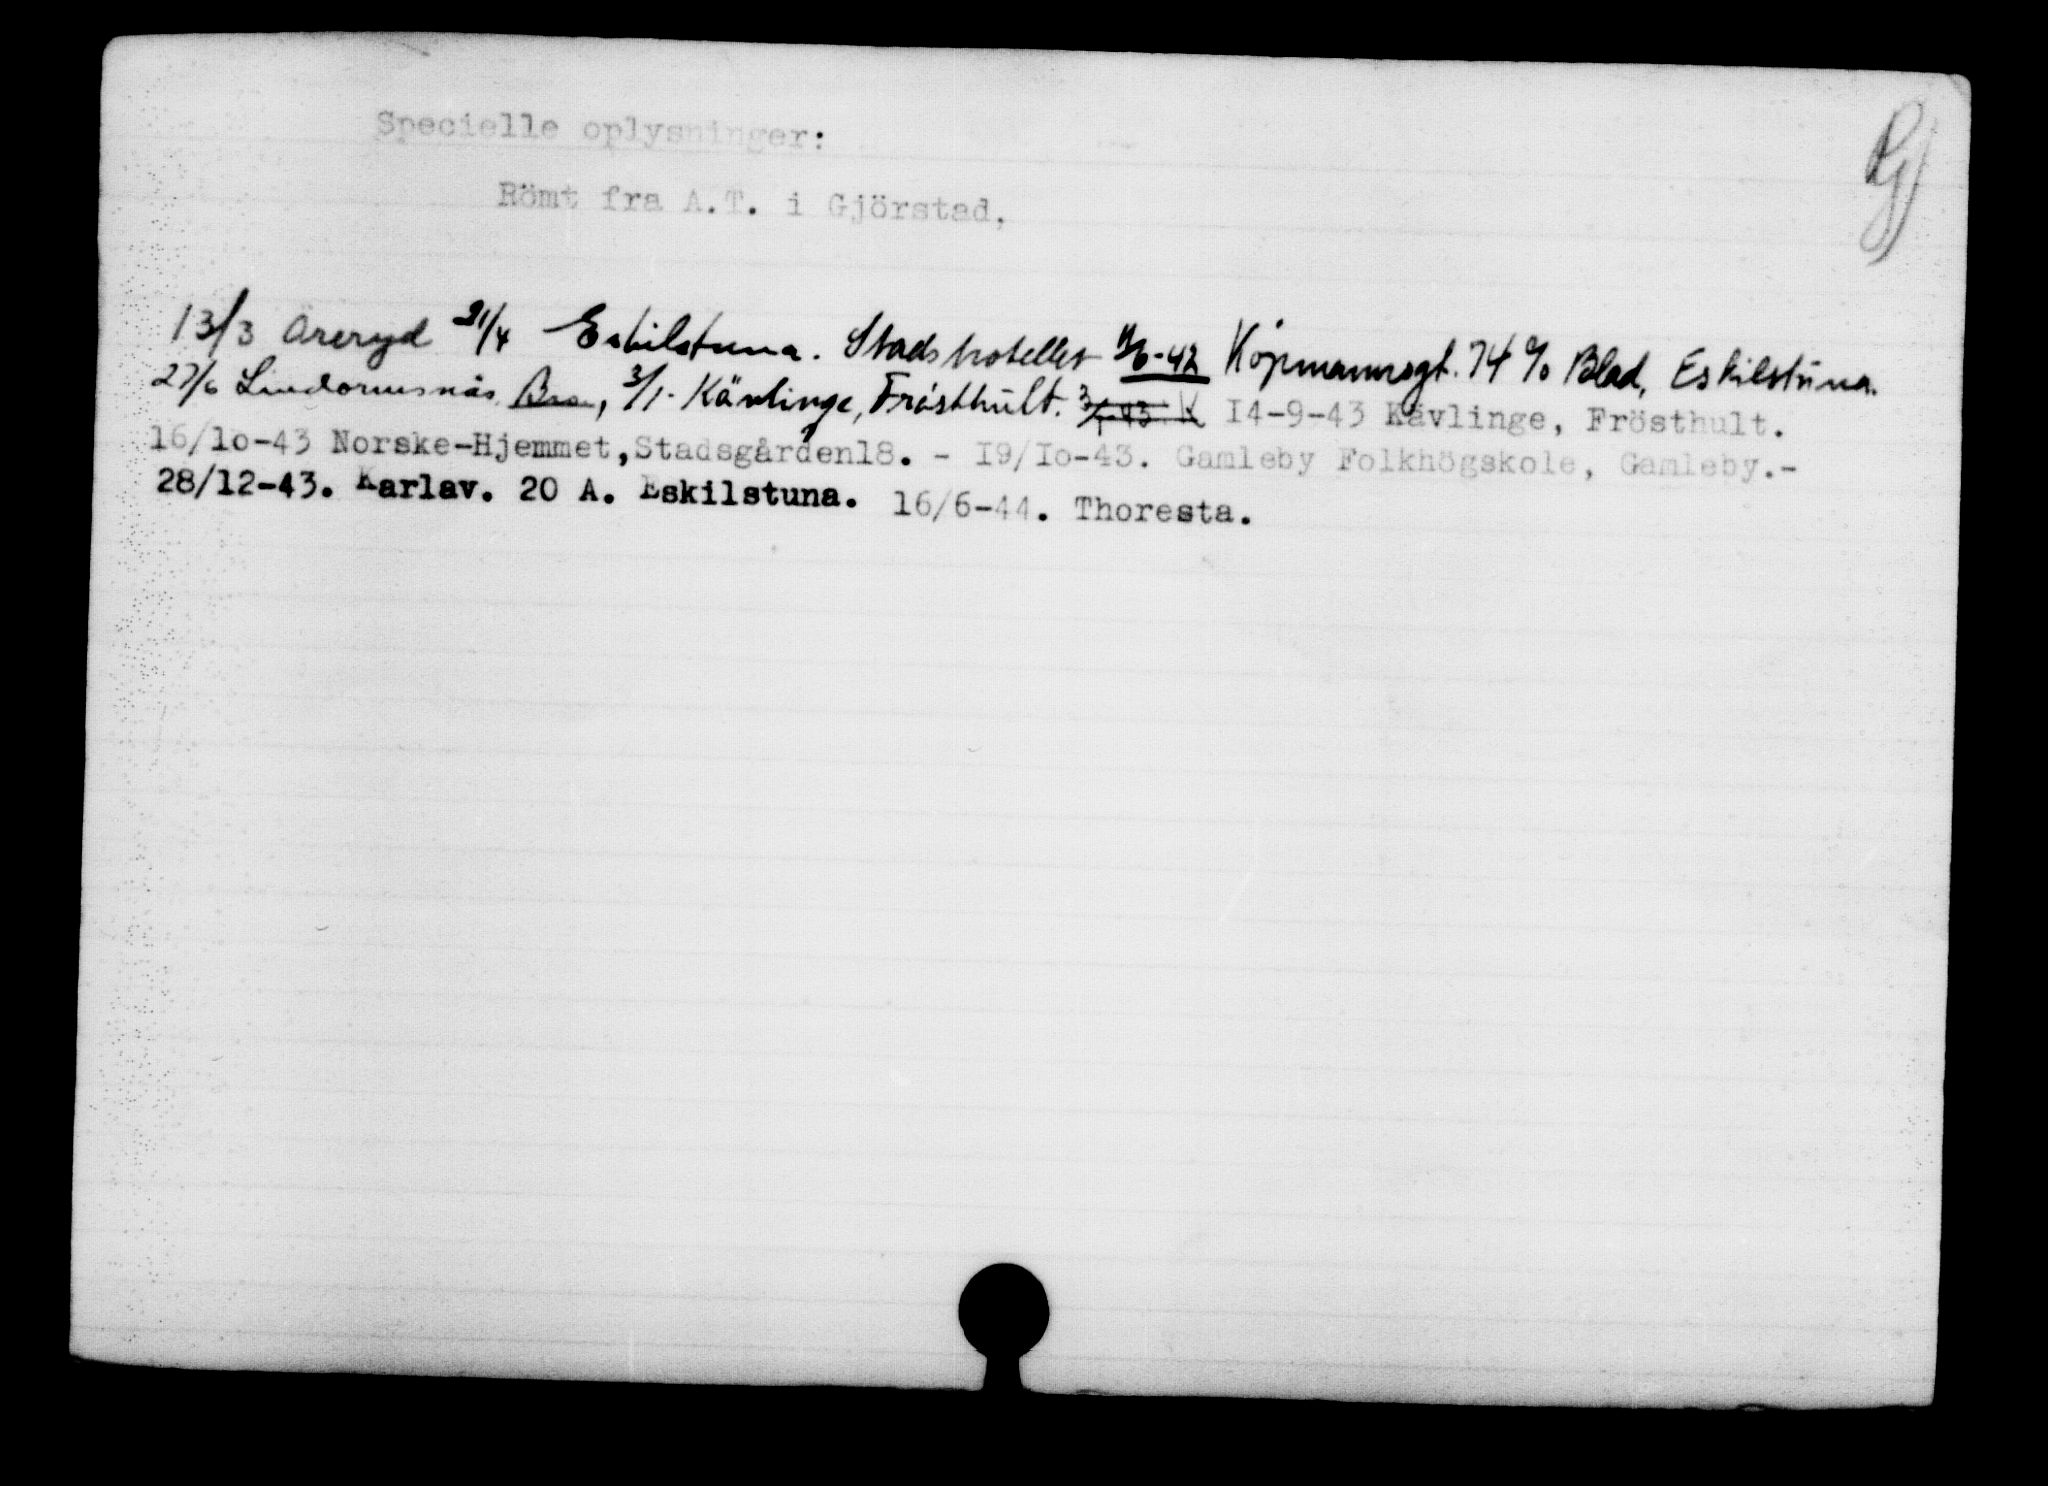 Specielle oplysninger:
Römt fra A.T. i Gjörstad,
13/3 Öreryd 21/4 Eskilstuna. Stadshotellet 11/6-42 Köpmannsgt. 74 c/o Blad, Eskilstuna.
27/6 Lindormsnäs, 3/1- Kävlinge, Frösthult. 3/1-43. K 14-9-43 Kävlinge, Frösthult.
16/1o-43 Norske-Hjemmet,Stadsgården18. - I9/Io-43. Gamleby Folkhögskole, Gamleby.-
28/12-43. Karlav. 20 A. Eskilstuna. 16/6-44. Thoresta.